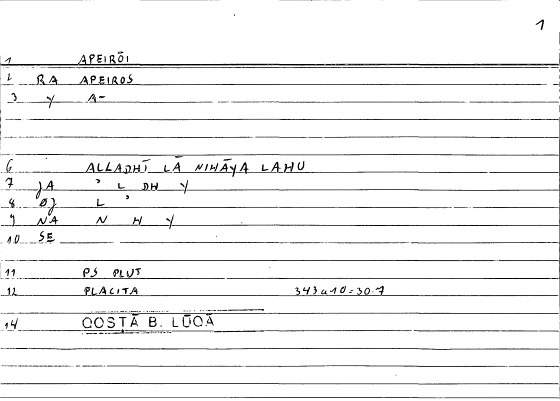 1
1 APEIRŌI
2 RA APEIROS
3 Y A-
6 ALLADHĪ LĀ NIHĀYA LAHU
7 JA ʾ L DH Y
8 DJ L ʾ
9 NA N H Y
10 SE
11 PS PLUT
12 PLACITA 343a10=30.7
14 QOSṬĀ B. LŪQĀ